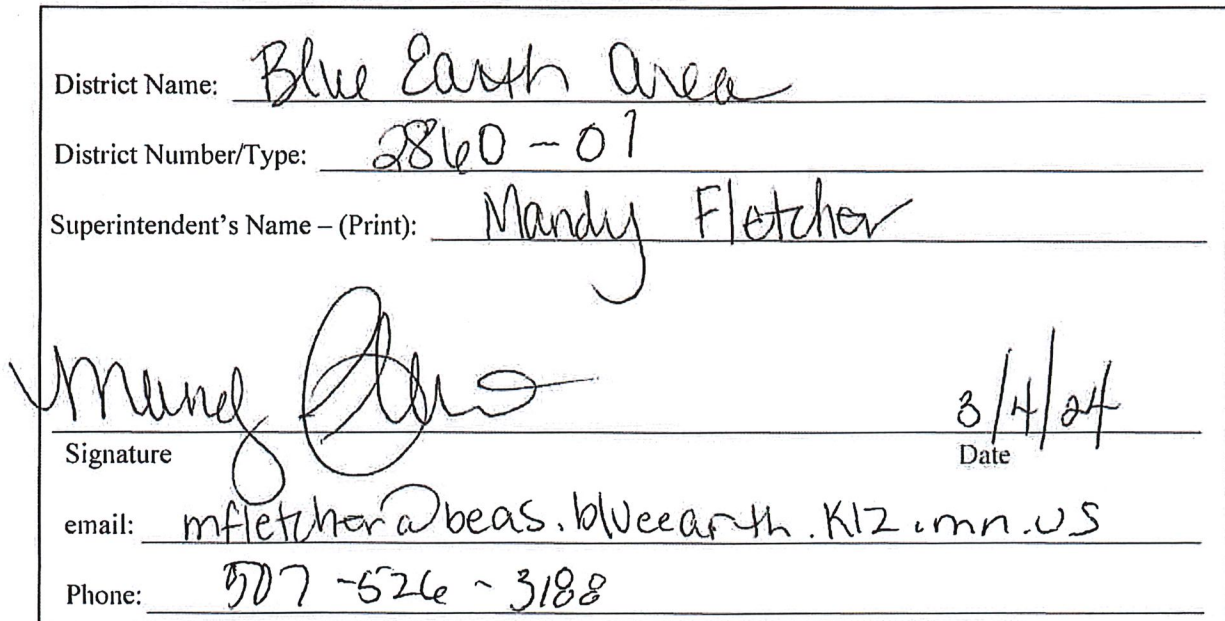 District Name: Blue Earth Area
District Number/Type: 2860-01
Superintendent's Name – (Print): Mandy Fletcher
3/4/24
Signature Date
email: mfletcher@beas.blueearth.k12.mn.us
Phone: 507-526-3188